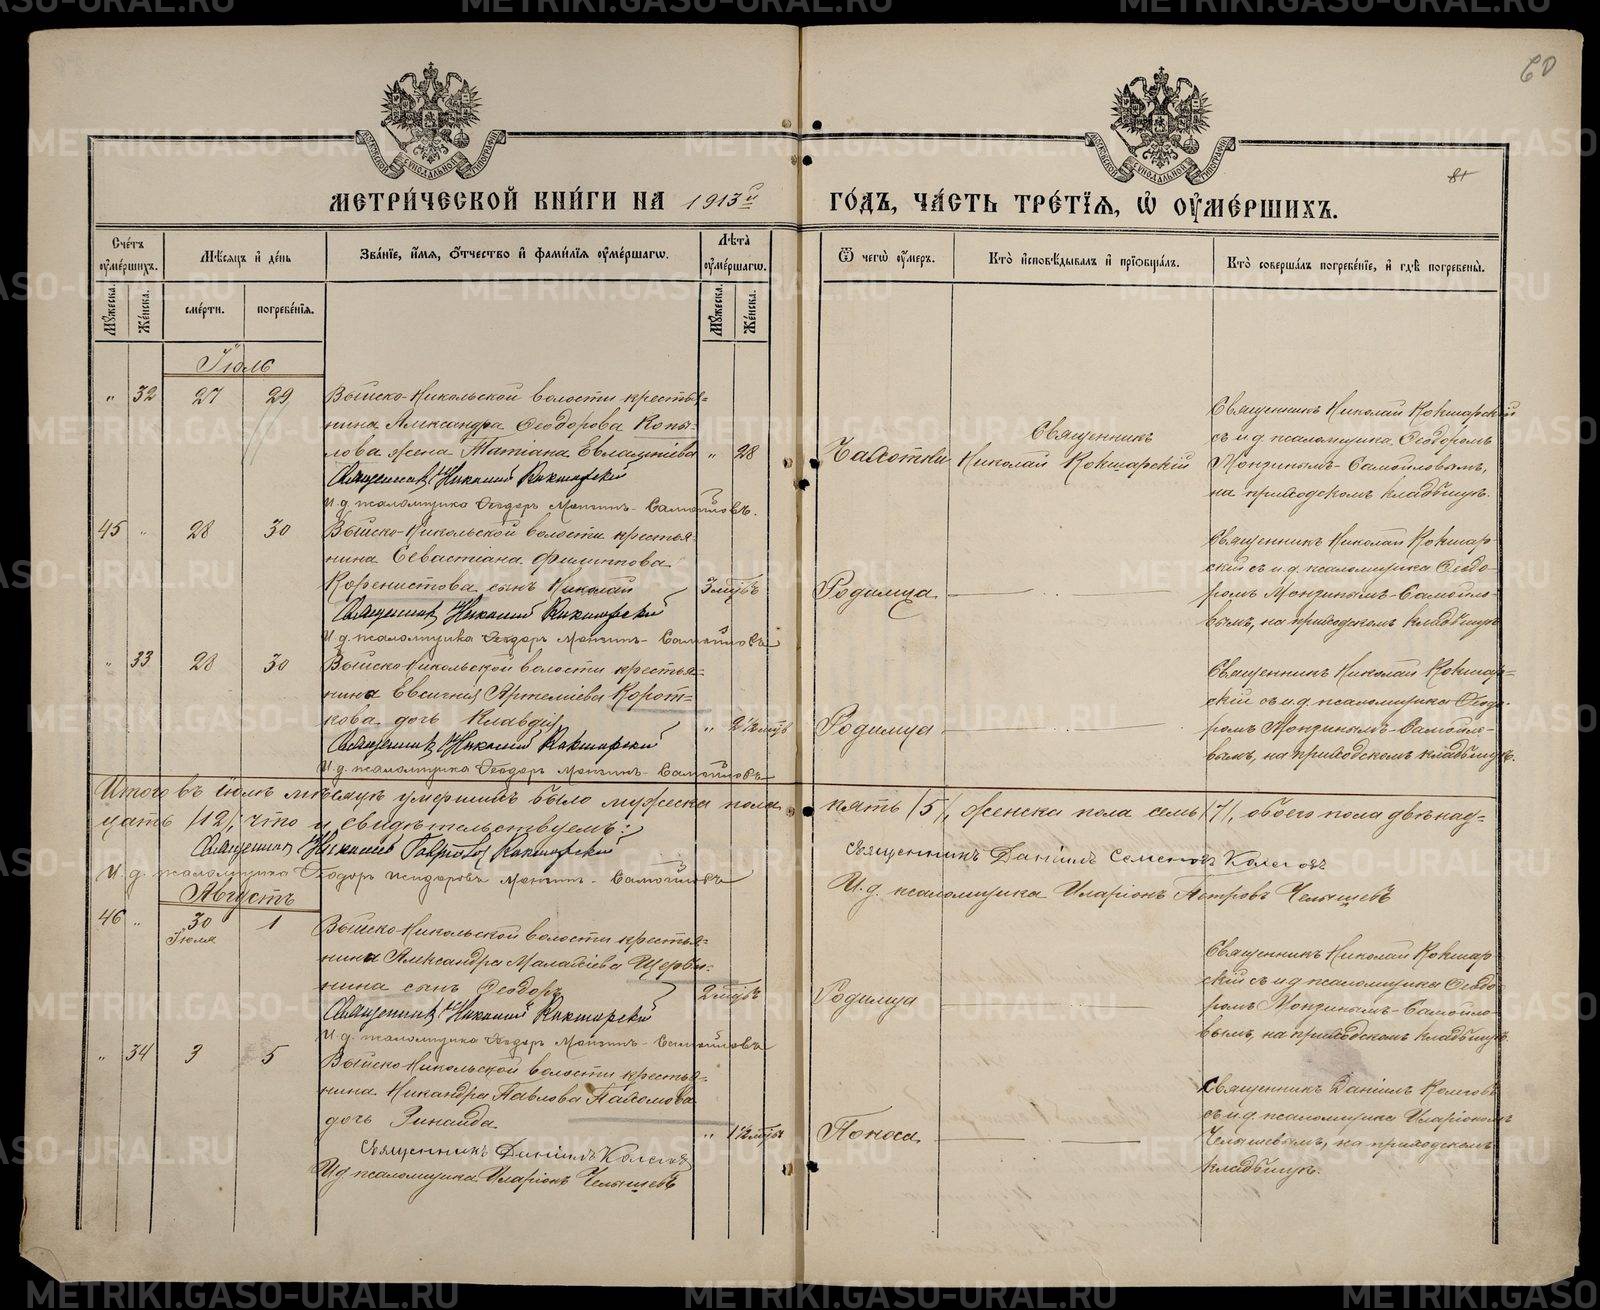 60
81
МЕТРИ́ЧЕСКОЙ КНИ́ГИ НА 1913й ГО́ДЪ, ЧА́СТЬ ТРЕ́ТІЯ, Ѡ ОУМЕ́РШИХЪ.
Сче́тъ оуме́ршихъ.
Мꙋ́жеска.
Же́нска.
Мѣ́сяцъ и де́нь
сме́рти.
погребе́нія.
Зва́ніе, и́мя, о́тчество и фами́лія оуме́ршагѡ.
Лѣ́та оуме́ршагѡ.
Мꙋ́жеска.
Же́нска.
Ѿ чегѡ̀ оу́меръ.
Кто̀ исповѣ́дывалъ и пріобща́лъ.
Кто̀ соверша́лъ погребе́ніе, и гдѣ̀ погребены̀.
Іюль
" 32 27 29
Выйско-Никольской волости крестья=
нина Александра Ѳеодорова Копы-
лова жена Татіана Евлампіева " 28
Священникъ Николай Кокшарскій
И.д. псаломщика Ѳеодоръ Мензинъ-Самойловъ.
Чахотки
Священникъ
Николай Кокшарскій
Священникъ Николай Кокшарскій
съ и.д. псаломщика Ѳеодоромъ
Мензинымъ-Самойловымъ,
на приходскомъ кладбищѣ.
45 " 28 30
Выйско-Никольской волости крестья
нина Севастіана Филиппова
Коренистова сынъ Николай 3 мцвъ
Священникъ Николай Кокшарскій
И.д. псаломщика Ѳеодоръ Мензинъ-Самойловъ
Родимца
Священникъ Николай Кокшар-
скій съ и.д. псаломщика Ѳеодо-
ромъ Мензинымъ-Самойло-
вымъ, на приходскомъ кладбищѣ
" 33 28 30
Выйско-Никольской волости крестья-
нина Евсигнія Артеміева Корот=
кова дочь Клавдія " 2½ мцв
Священникъ Николай Кокшарскій
И.д. псаломщика Ѳеодоръ Мензинъ-Самойловъ
Родимца
Священникъ Николай Кокшар-
скій съ и.д. псаломщика Ѳеодо-
ромъ Мензинымъ-Самойло-
вымъ, на приходскомъ кладбищѣ.
Итого въ іюлѣ мѣсяцѣ умершихъ было мужеска пола пять /5/, женска пола семь /7/, обоего пола двѣнад-
цать /12/, что и свидѣтельствуемъ:
Священникъ Николай Кокшарскій
И.д. псаломщика Ѳеодоръ Исидоровъ Мензинъ-Самойловъ
Священникъ Даніилъ Семеновъ Колеговъ
И.д. псаломщика Иларіонъ Петровъ Челышевъ
Августъ
46 " 30 Іюля 1
Выйско-Никольской волости крестья-
нина Александра Малахіева Щерби-
нина сынъ Ѳеодоръ 2 мцвъ
Священникъ Николай Кокшарскій
И.д. псаломщика Ѳеодоръ Мензинъ-Самойловъ
Родимца
Священникъ Николай Кокшар
скій съ и.д. псаломщика Ѳеодо
ромъ Мензинымъ-Самойло-
вымъ, на приходскомъ кладбищѣ.
" 34 3 5
Выйско-Никольской волости крестья-
нина Никандра Павлова Пахомова
дочь Зинаида " 1½ мца
Священникъ Даніилъ Колеговъ
И.д. псаломщика Иларіонъ Челышевъ
Поноса
Священникъ Даніилъ Колеговъ
съ и.д. псаломщика Иларіономъ
Челышевымъ, на приходскомъ
кладбищѣ.
METRIKI.GASO-URAL.RU